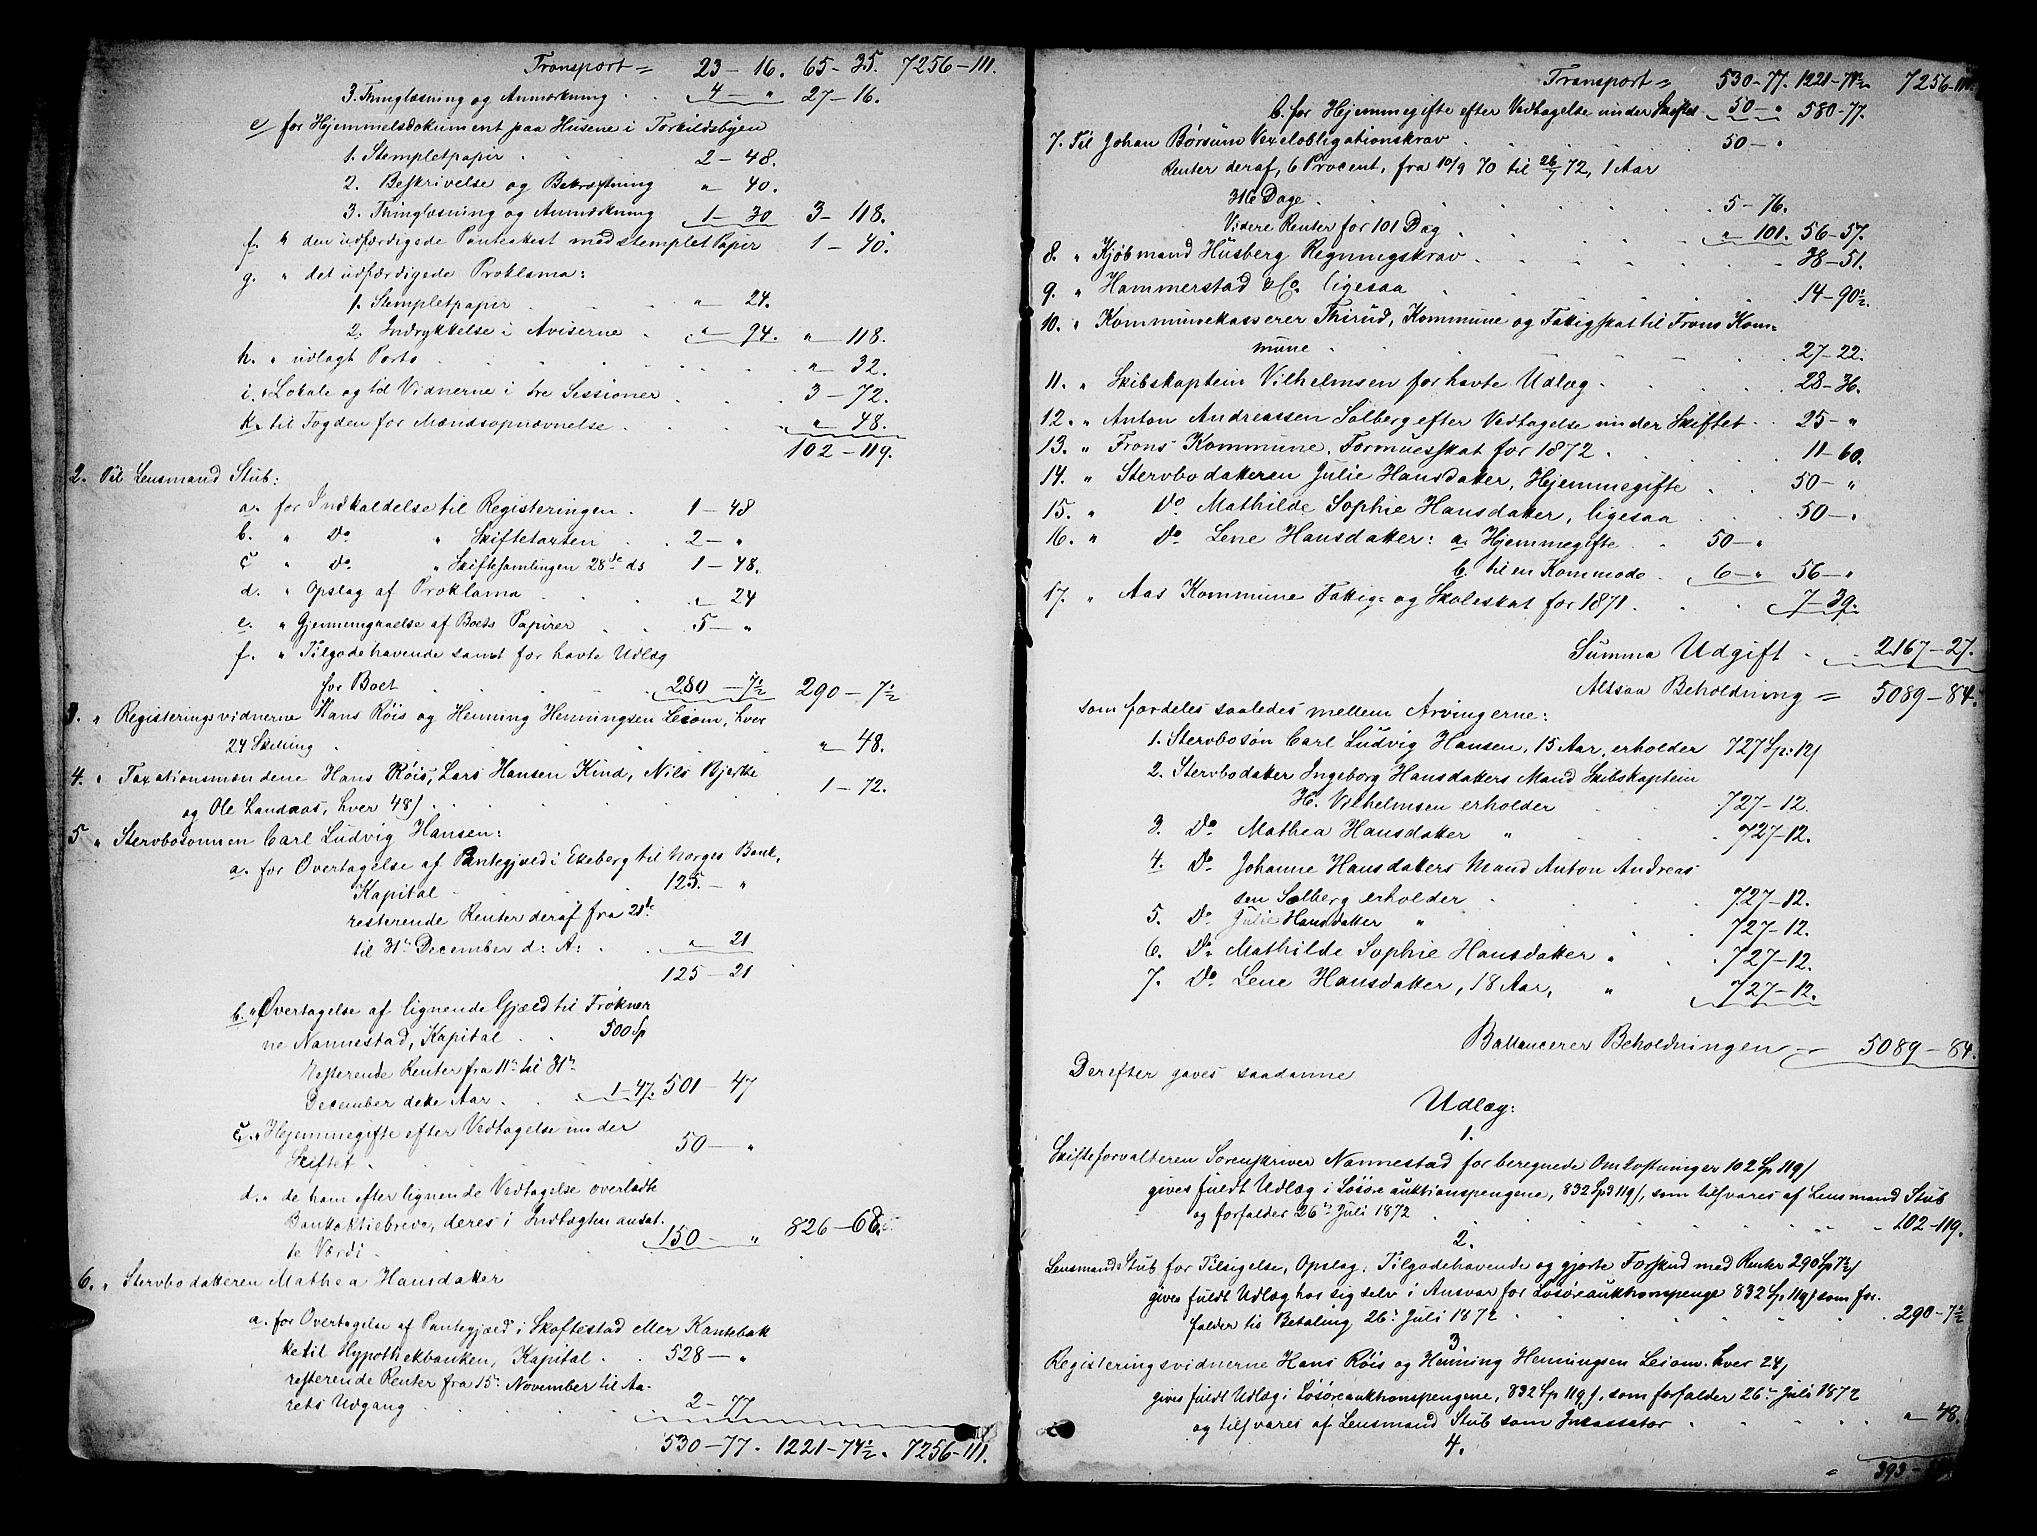 Transport = 23 – 16. 65 – 35. 7256 – 111.
3. Thinglæsning og Anmærkning . . 4 – " 27 – 16.
e/ for Hjemmelsdokument paa Husene i Torkildsbyen
1. Stempletpapir . . . . 2 – 48.
2. Beskrivelse og Bekræftning " 40.
3. Thinglæsning og Anmærkning 1 – 30 3 – 118.
f. " den udfærdigede Panteattest med stemplet Papir 1 – 40.
g. " det udfærdigede Proklama:
1. Stempletpapir . . . " 24.
2. Indrykkelse i Aviserne . " – 94. " – 118.
h. " udlagt Porto . . . . " – 32.
i. " Lokale og til Vidnerne i tre Sessioner . . . 3 – 72.
k. til Fogden for Mændsopnævnelse . . . . " – 48.
102 – 119.
2. Til Lensmand Stub:
a. for Indkaldelse til Registeringen . 1 – 48
b. " Do " Skiftetarten . 2 – "
c " do " Skiftesamlingen 28de ds 1 – 48.
d. " Opslag af Proklama . . . " – 24
e. " Gjennemgaaelse af Boets Papirer . . 5 – "
f. " Tilgodehavende samt for havte Udlæg
for Boet . . . 280 – 7½ 290 – 7½
3. " Registeringsvidnerne Hans Röis og Henning Henningsen Leiom, hver
24 Skilling . . . . " – 48.
4. " Taxationsmændene Hans Röis, Lars Hansen Kind, Nils Bjerke
og Ole Landaas, hver 48/ . . . . 1 – 72.
5 " Stervbosönnen Carl Ludvig Hansen:
a. for Overtagelse af Pantegjæld i Ekeberg til Norges Bank,
Kapital . . . 125. – "
resterende Renter deraf fra 21de
til 31te December d: A: . . " – 21
125 – 21
b. " Overtagelse af lignende Gjæld til Fröknerne
ne Nannestad, Kapital . . 500 Sp
Resterende Renter fra 11te til 31te
December dette Aar . . . 1 – 47. 501 – 47
c. " Hjemmegifte efter Vedtagelse under
Skiftet . . . . . 50 – "
d. " de ham efter lignende Vedtagelse overladte
Bankaktiebreve, deres i Indtægten ansat-
te Værdi . . . . 150 – " 826 – 68.
6. " Stervbodatteren Mathea Hansdatter
a. for Overtagelse af Pantegjæld i Skoftestad eller Kantebak
ke til Hypothekbanken, Kapital . . 528 – "
resterende Renter fra 15de November til Aa-
rets Udgang . . . . 2 – 77
530 – 77. 1221 – 74½. 7256 – 111.
Transport = 530 – 77. 1221 – 74½ 7256 – 111.
b. for Hjemmegifte efter Vedtagelse under Skiftet 50 – " 580 – 77.
7. Til Johan Börsum Vexelobligationskrav . . . 50 – "
Renter deraf, 6 Procent, fra 10/9 70 til 26/7 72, 1 Aar
316 Dage . . . . . 5 – 76.
Videre Renter for 101 Dag . . . . " 101. 56 – 57.
8. " Kjöbmand Husberg Regningskrav . . . . 38 – 51.
9. " Hammerstad & Co. ligesaa . . . . 14 – 90½
10. " Kommunekasserer Thirud, Kommune og Fattigskat til Frons Kom-
mune . . . . . 27 – 22.
11. " Skibskaptein Vilhelmsen for havte Udlæg . . . . 28 – 36.
12. " Anton Andreassen Solberg efter Vedtagelse under Skiftet . . 25 – "
13. " Frons Kommune, Formuesskat for 1872 . . . 11 – 60.
14. " Stervbodatteren Julie Hansdatter, Hjemmegifte . . 50 – "
15. " Do Mathilde Sophie Hansdatter, ligesaa . . . 50 – "
16. " do Lene Hansdatter: a. Hjemmegifte . . 50 – "
b. til en Kommode . 6 – " 56 – "
17. " Aas Kommune Fattig- og Skoleskat for 1871 . . . 7 – 39.
Summa Udgift . . 2167 – 27.
Altsaa Beholdning = 5089 – 84.
som fordeles saaledes mellem Arvingerne:
1. Stervbosön Carl Ludvig Hansen, 15 Aar, erholder 727 Sp: 12/
2. Stervbodatter Ingeborg Hansdatters Mand Skibskaptein
H. Vilhelmsen erholder . 727 – 12.
3. Do Mathea Hansdatter " . 727 – 12.
4. Do Johanne Hansdatters Mand Anton Andreas
sen Solberg erholder . . 727 – 12.
5. Do Julie Hansdatter " . . 727 – 12.
6. Do Mathilde Sophie Hansdatter " . 727 – 12.
7. Do Lene Hansdatter, 18 Aar, " 727 – 12.
Ballancerer Beholdningen = 5089 – 84.
Derefter gaves saadanne
Udlæg:
1.
Skifteforvalteren Sorenskriver Nannestad for beregnede Omkostninger 102 Sp 119/
gives fuldt Udlæg i Lösöreauktionspengene, 832 Sp 119/, som tilsvares af Lensmand Stub
og forfalder 26de Juli 1872 . . . . 102 – 119.
2.
Lensmand Stub for Tilsigelse, Opslag, Tilgodehavende og gjorte Forskud med Renter 290 Sp 7½/
gives fuldt Udlæg hos sig selv i Ansvar for Lösöreauktionspenge 832 Sp. 119/ som for-
falder til Betaling 26. Juli 1872 . . . . 290 – 7½
3
Registeringsvidnerne Hans Röis og Henning Henningsen Leiom. hver 24/
gives fuldt Udlæg i Lösöreauktionspengene, 832 Sp 119/, som forfalder 26de Juli 1872
og tilsvares af Lensmand Stub som Inkassator . . . " – 48.
4.
" 393 –